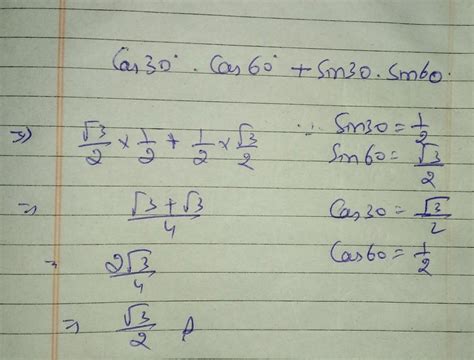 Cos30° . Cos60° + Sin30 . Sin60.
⇒) √3/2 × 1/2 + 1/2 × √3/2 ∵ Sin30 = 1/2
Sin60 = √3/2
⇒ √3 + √3 / 4 Cos30 = √3/2
⇒ 2√3/4 Cos60 = 1/2
⇒ √3/2